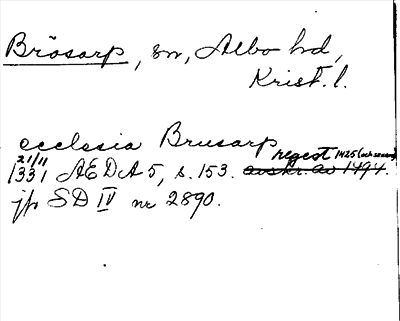 Brösarp, sn, Albo hd,
Krist. l.
ecclesia Brusarp
21/11 regest 1425 (och senare)
1331 AEDA 5, s. 153. avskr. av 1494.
jfr SD IV nr 2890.